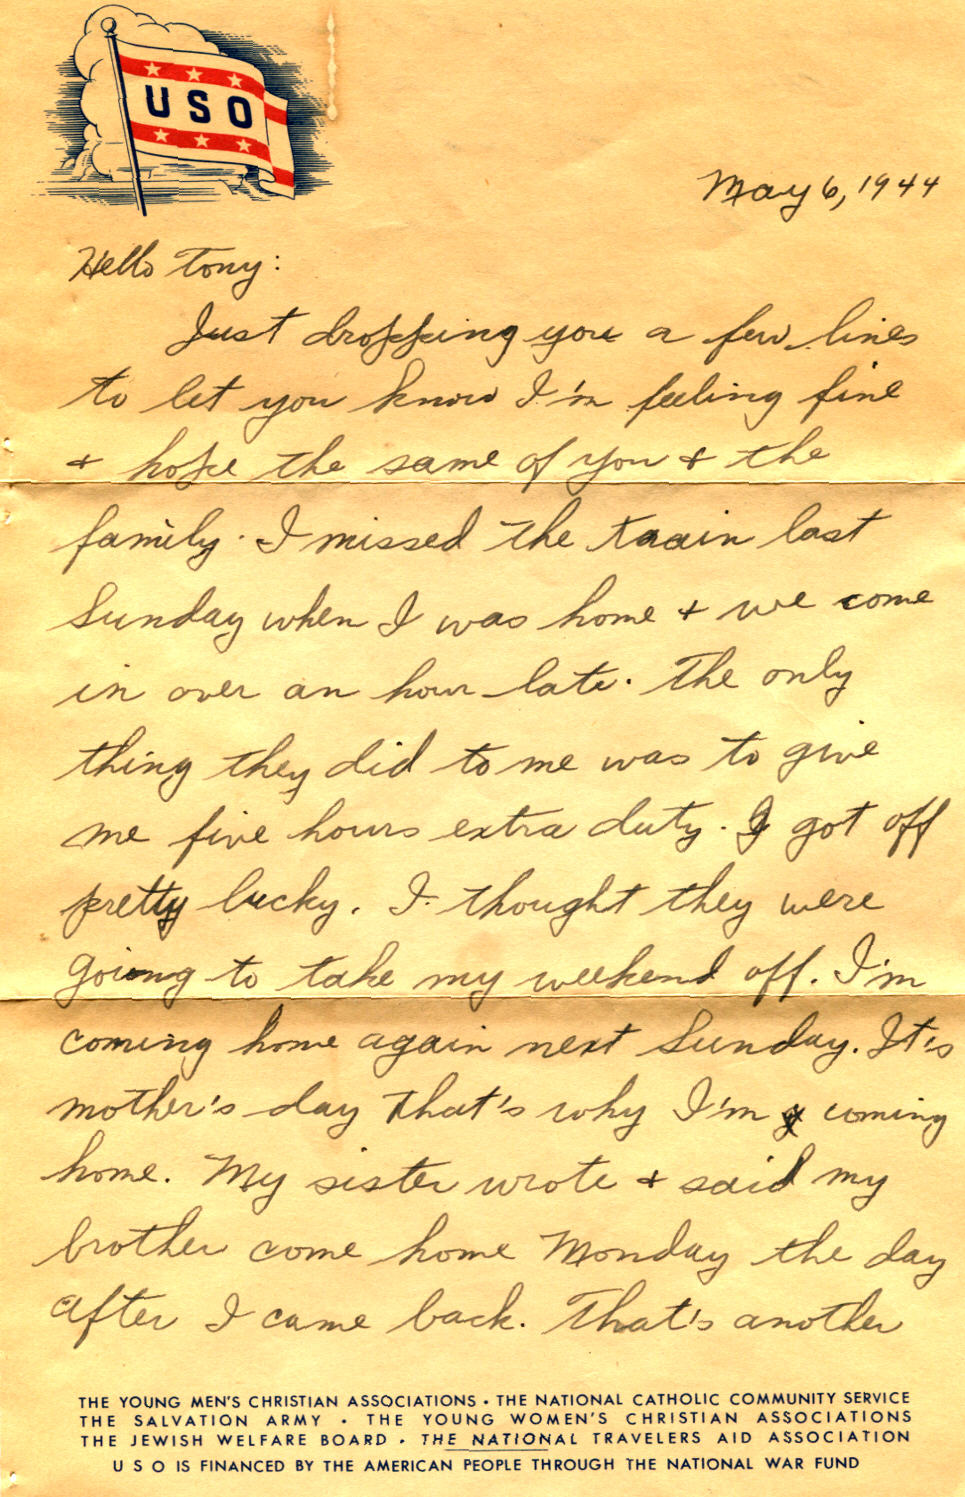 USO
May 6, 1944
Hello Tony:
Just dropping you a few lines
to let you know I'm feeling fine
+ hope the same of you + the
family. I missed the train last
Sunday when I was home + we come
in over an hour late. The only
thing they did to me was to give
me five hours extra duty. I got off
pretty lucky. I thought they were
going to take my weekend off. I'm
coming home again next Sunday. It's
mother's day that's why I'm coming
home. My sister wrote + said my
brother come home Monday the day
after I came back. That's another
THE YOUNG MEN'S CHRISTIAN ASSOCIATIONS • THE NATIONAL CATHOLIC COMMUNITY SERVICE
THE SALVATION ARMY • THE YOUNG WOMEN'S CHRISTIAN ASSOCIATIONS
THE JEWISH WELFARE BOARD • THE NATIONAL TRAVELERS AID ASSOCIATION
USO IS FINANCED BY THE AMERICAN PEOPLE THROUGH THE NATIONAL WAR FUND